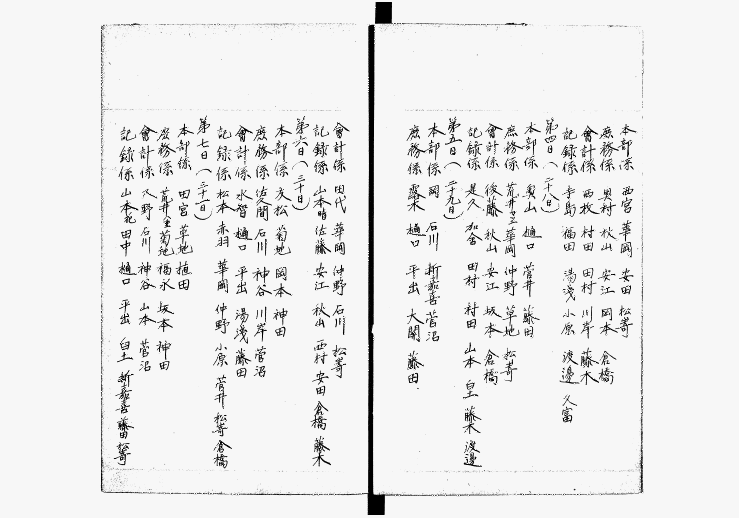 本部係 西宮 華岡 安田 松嵜
庶務係 奥村 秋山 安江 岡本 倉橋
會計係 西牧 村田 田村 川岸 藤木
記録係 寺島 福田 湯浅 小原 渡邊 久富
第四日(二十八日)
本部係 奥山 樋口 菅井 藤田
庶務係 荒井 華岡 仲野 草地 松嵜
會計係 後藤 秋山 安江 坂本 倉橋
記録係 是久 加舍 田村 村田 山本 藤木 渡邊
第五日(二十九日)
本部係 岡 石川 新嘉喜 菅沼
庶務係 露木 樋口 平出 大関 藤田
會計係 田代 華岡 仲野 石川 松嵜
記録係 山本晴 佐藤 安江 秋山 西村 安田 倉橋 藤木
第六日(三十日)
本部係 友松 菊地 岡本 神田
庶務係 佐久間 石川 神谷 川岸 菅沼
會計係 水智 樋口 平出 湯浅 藤田
記録係 松本 赤羽 華岡 仲野 小原 菅井 松嵜 倉橋
第七日(三十一日)
本部係 田宮 草地 植田
庶務係 荒井 菊地 福永 坂本 神田
會計係 久野 石川 神谷 山本 菅沼
記録係 山本 田中 樋口 平出 白土 新嘉喜 藤田 松嵜